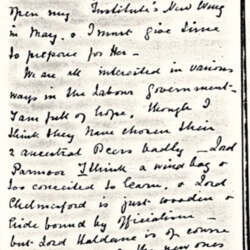 open my Institute's New Wing
in May. & I must give time
to prepare for Her —
We are all interested in various
ways in the Labour Government —
I am full of hope. Though I
think they have chosen their
2 ancestral Peers badly — Lord
Parmoor I think a wind bag &
too conceited to learn. & Lord
Chelmsford is just wooden &
hide bound by officialism —
but Lord Haldane is of course
the new ones